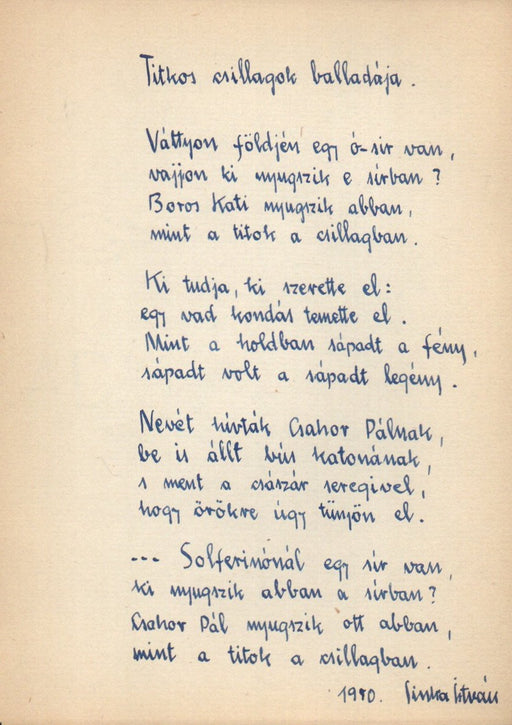 Titkos csillagok balladája.
Váttyon földjén egy ó-sir van,
vajjon ki nyugszik e sírban?
Boros Kati nyugszik abban,
mint a titok a csillagban.
Ki tudja, ki szerette el:
egy vad kondás temette el.
Mint a holdban sápadt a fény,
sápadt volt a sápadt legény.
Nevét hívták Csahor Pálnak,
be is állt bús katonának,
s ment a császár seregivel,
hogy örökre úgy tünjön el.
--- Solferinónál egy sír van,
ki nyugszik abban a sírban?
Csahor Pál nyugszik ott abban,
mint a titok a csillagban.
Sinka István